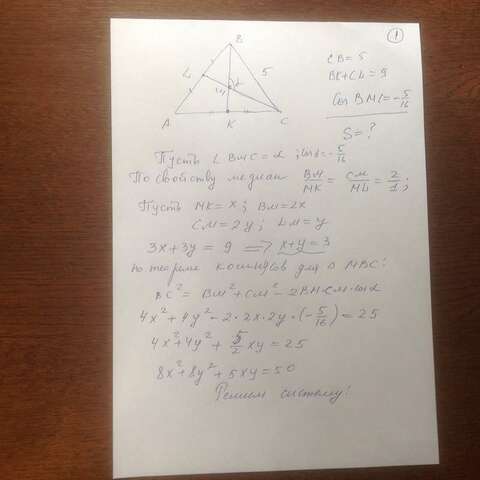 1
B
L
5
M
α
A
K
C
CB = 5
BK + CL = 9
Cos BMC = -5/16
S = ?
Пусть ∠BMC = α ; cosα = -5/16
По свойству медиан BM/MK = CM/ML = 2/1 ;
Пусть MK = x ; BM = 2x
CM = 2y ; LM = y
3x + 3y = 9 => x + y = 3
По теореме косинусов для Δ MBC:
BC² = BM² + CM² - 2BM·CM·cosα
4x² + 4y² - 2·2x·2y·(-5/16) = 25
4x² + 4y² + 5/2 xy = 25
8x² + 8y² + 5xy = 50
Решаем систему: